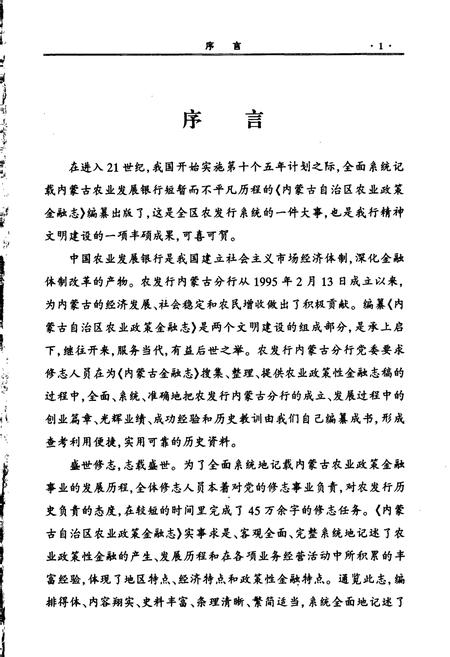 序 言 ·1·
序 言
在进入21世纪,我国开始实施第十个五年计划之际,全面系统记
载内蒙古农业发展银行短暂而不平凡历程的《内蒙古自治区农业政策
金融志》编纂出版了,这是全区农发行系统的一件大事,也是我行精神
文明建设的一项丰硕成果,可喜可贺。
中国农业发展银行是我国建立社会主义市场经济体制,深化金融
体制改革的产物。农发行内蒙古分行从1995年2月13日成立以来,
为内蒙古的经济发展、社会稳定和农民增收做出了积极贡献。编纂《内
蒙古自治区农业政策金融志》是两个文明建设的组成部分,是承上启
下,继往开来,服务当代,有益后世之举。农发行内蒙古分行党委要求
修志人员在为《内蒙古金融志》搜集、整理、提供农业政策性金融志稿的
过程中,全面、系统、准确地把农发行内蒙古分行的成立、发展过程中的
创业篇章、光辉业绩、成功经验和历史教训由我们自己编纂成书,形成
查考利用便捷,实用可靠的历史资料。
盛世修志,志载盛世。为了全面系统地记载内蒙古农业政策金融
事业的发展历程,全体修志人员本着对党的修志事业负责,对农发行历
史负责的态度,在较短的时间里完成了45万余字的修志任务。《内蒙
古自治区农业政策金融志》实事求是、客观全面、完整系统地记述了农
业政策性金融的产生、发展历程和在各项业务经营活动中所积累的丰
富经验,体现了地区特点、经济特点和政策性金融特点。通览此志,编
排得体、内容翔实、史料丰富、条理清晰、繁简适当,系统全面地记述了